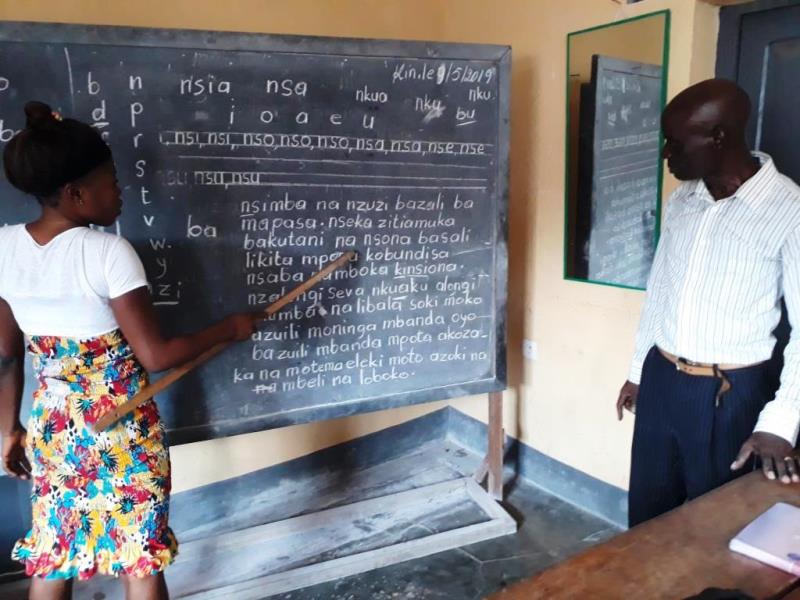 Kin. le 9/5/2019
b n nsia nsa nkua nku nku
d p i o a e u bu
r , nsi, nsi, nso, nso, nso, nsa, nsa, nse, nse
s
t nsu, nsu
v ba
w
y
zi
nsimba na nzuzi bazali ba
mapasa. nseka zitiamuka
bakutani na nsona basali
likita mpona kobundisa
nsaba na mboka kinsiona.
seva nkuaku alongi
na libala soki moko
azuili moninga mbanda oyo
ba zuili mbanda mpota akoza-
ka na motema eleki moto azoki na
na mbeli na loboko.